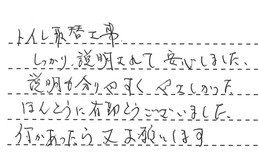 トイレ取替工事
しっかり説明されて安心しました。
説明も分りやすくやさしかった
ほんとうに有難うございました。
何かあったら又お願いします